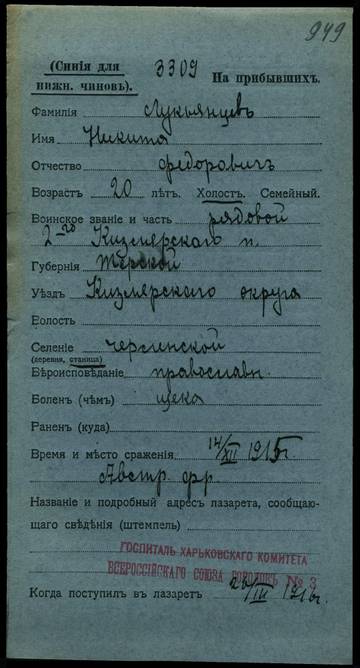 949
(Синія для нижн. чиновъ).
3309
На прибывшихъ.
Фамилія Лукьянцевъ
Имя Никита
Отчество Федоровичъ
Возрастъ 20 лѣтъ. Холостъ. Семейный.
Воинское званіе и часть рядовой
2-го Кизлярскаго п.
Губернія Терской
Уѣздъ Кизлярскаго округа
Волость
Селеніе червленской
(деревня, станица)
Вѣроисповѣданіе православн.
Боленъ (чѣмъ) щека
Раненъ (куда)
Время и мѣсто сраженія 14/XII 1915г
Австр. фр.
Названіе и подробный адресъ лазарета, сообщаю-
щаго свѣдѣнія (штемпель)
ГОСПИТАЛЬ ХАРЬКОВСКАГО КОМИТЕТА
ВСЕРОССІЙСКАГО СОЮЗА ГОРОДОВЪ № 3
Когда поступилъ въ лазаретъ /III 1916г.